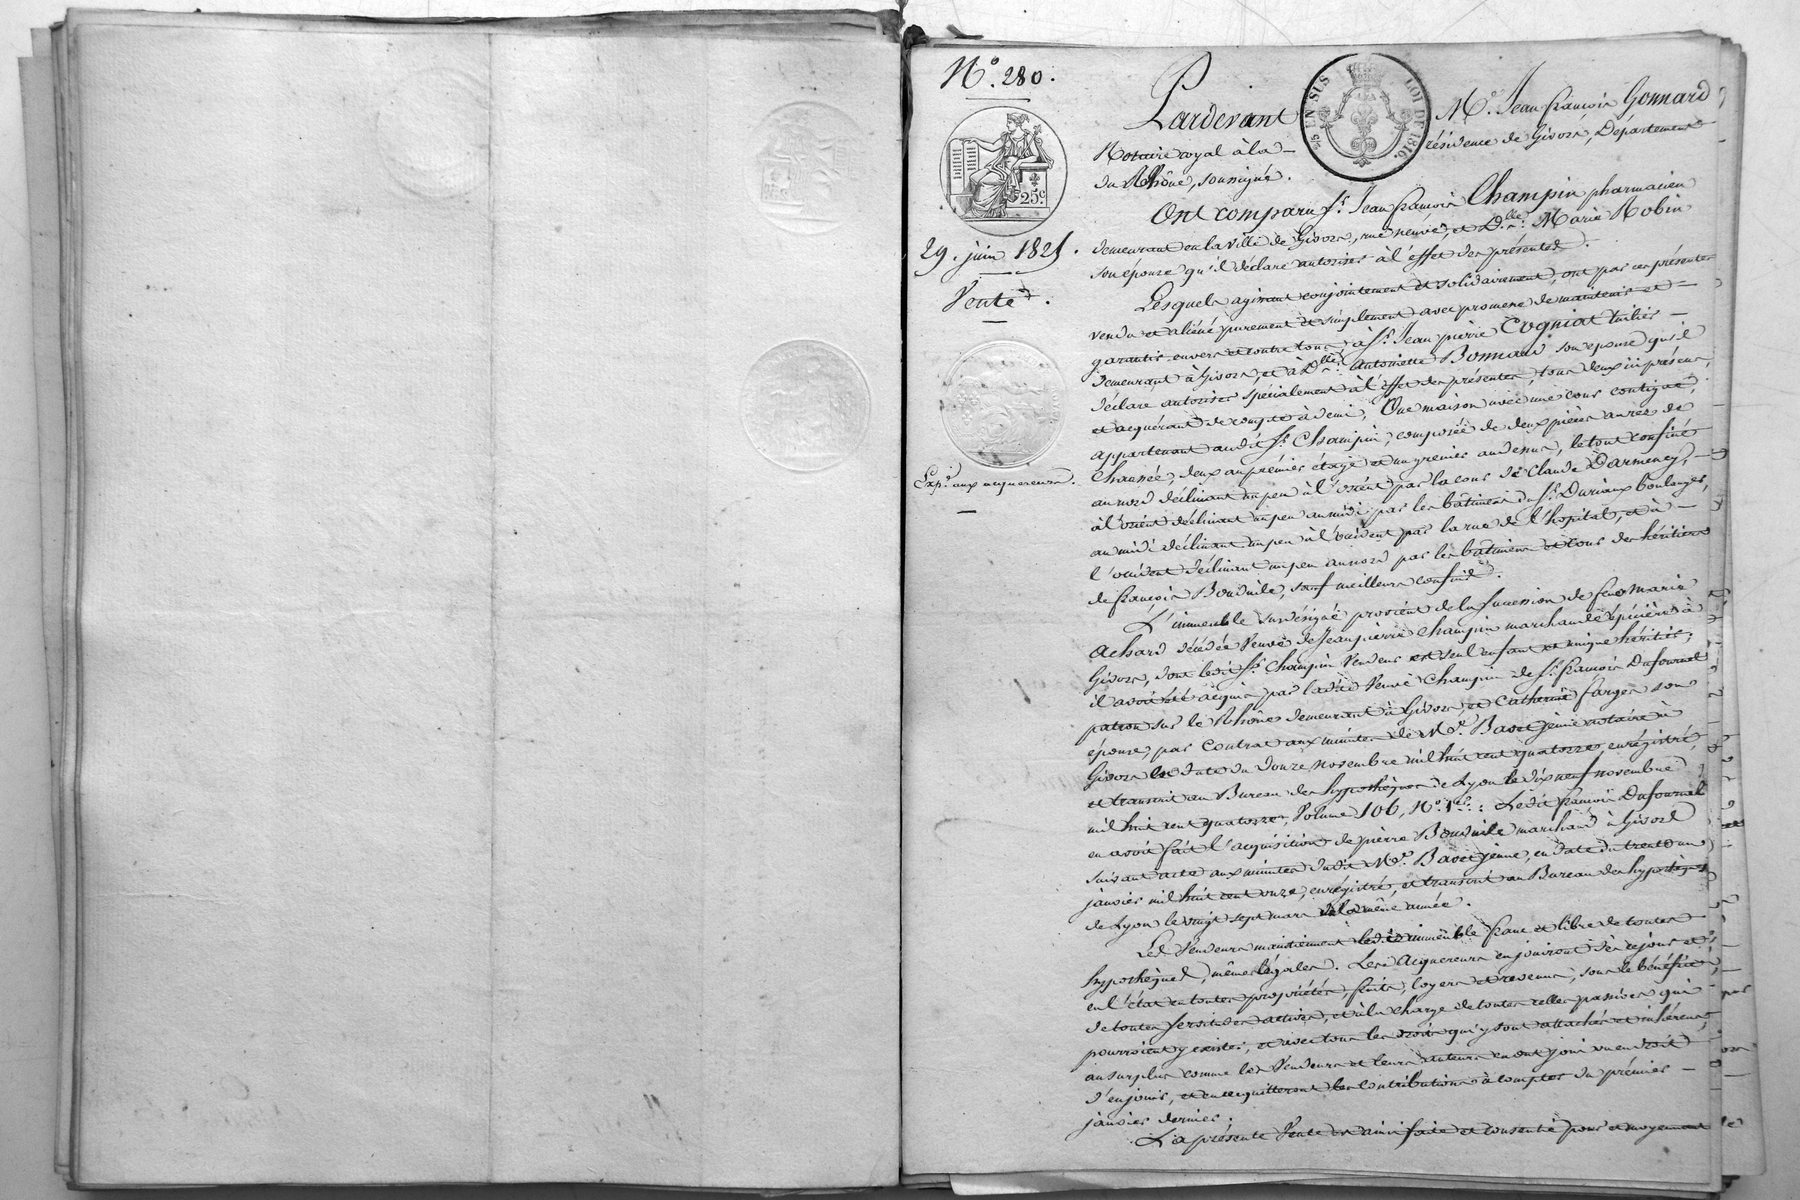 N° 280.
25 EN SUS
LOI DE 1816.
25c
29. juin 1825.
Vente.
Expé aux acquereurs.
Pardevant Me. Jean françois Gonnard
Notaire royal à la résidence de Givors, Département
du Rhône, soussigné.
Ont comparu Sr. Jean françois Champin pharmacien
demeurant en la ville de Givors, rue neuve, et Dlle. Marie Robin
son épouse qu'il déclare autoriser à l'effet des présentes.
Lesquels agissant conjointement et solidairement, ont par ces présentes
vendu et aliéné purement et simplement avec promesse de maintenir et
garantir envers et contre tous, à Sr. Jean pierre Cogniat tuilier
demeurant à Givors, et à Dlle. antoinette Bonnard son épouse qu'il
déclare autoriser spécialement à l'effet des présentes, tous deux ici présens,
et acquérant de compte à demi, Une maison avec une cour contigue,
appartenant audit Sr. Champin, composée de deux pièces au rez de
chaussée, deux au prémier étage et un grenier au dessus, le tout confiné
au nord déclinant un peu à l'orient par la cour de Claude Darmency,
à l'orient déclinant un peu au midi par les bâtimens du Sr. Duriaux boulanger,
au midi déclinant un peu à l'occident par la rue de l'hopital, et à
l'occident déclinant un peu au nord par les bâtimens et cour des héritiers
de françois Bonduile, sauf meilleurs confins.
L'immeuble susdésigné provient de la succession de feue Marie
Achard décédée veuve de Jean pierre Champin marchande épicière à
Givors, dont ledit Sr. Champin vendeur est seul enfant et unique héritier;
il avoit été acquis par ladite veuve Champin de Sr. françois Dufournel
patron sur le Rhône demeurant à Givors, et Catherine farges son
épouse, par contrat aux minutes de Me. Bavet jeune notaire à
Givors en date du douze novembre mil huit cent quatorze, enrégistré,
et transcrit au Bureau des hypothèques de Lyon le dix neuf novembre
mil huit cent quatorze, Volume 106, N°. : Ledit françois Dufournel
en avoit fait l'acquisition de pierre Bonduile marchand à Givors
suivant acte aux minutes dudit Me. Bavet jeune, en date du trente un
janvier mil huit cent onze, enrégistré, et transcrit au Bureau des hypothèques
de Lyon le vingt sept mars de la même année.
Les Vendeurs maintiennent ledit immeuble franc et libre de toutes
hypothèques, mêmes légales. Les Acquereurs en jouiront dès ce jour et
en l'état en toutes propriétés, fruits, loyers et revenus, sous le bénéfice
de toutes servitudes actives, et à la charge de toutes celles passives qui
pourroient y exister, et avec tous les droits qui y sont attachés et inhérens,
au surplus comme les Vendeurs et leurs auteurs en ont joui ou eu droit
d'en jouir, et en acquitteront les contributions à compter du prémier
janvier dernier.
La présente Vente est ainsi faite et consentie pour et moyennant